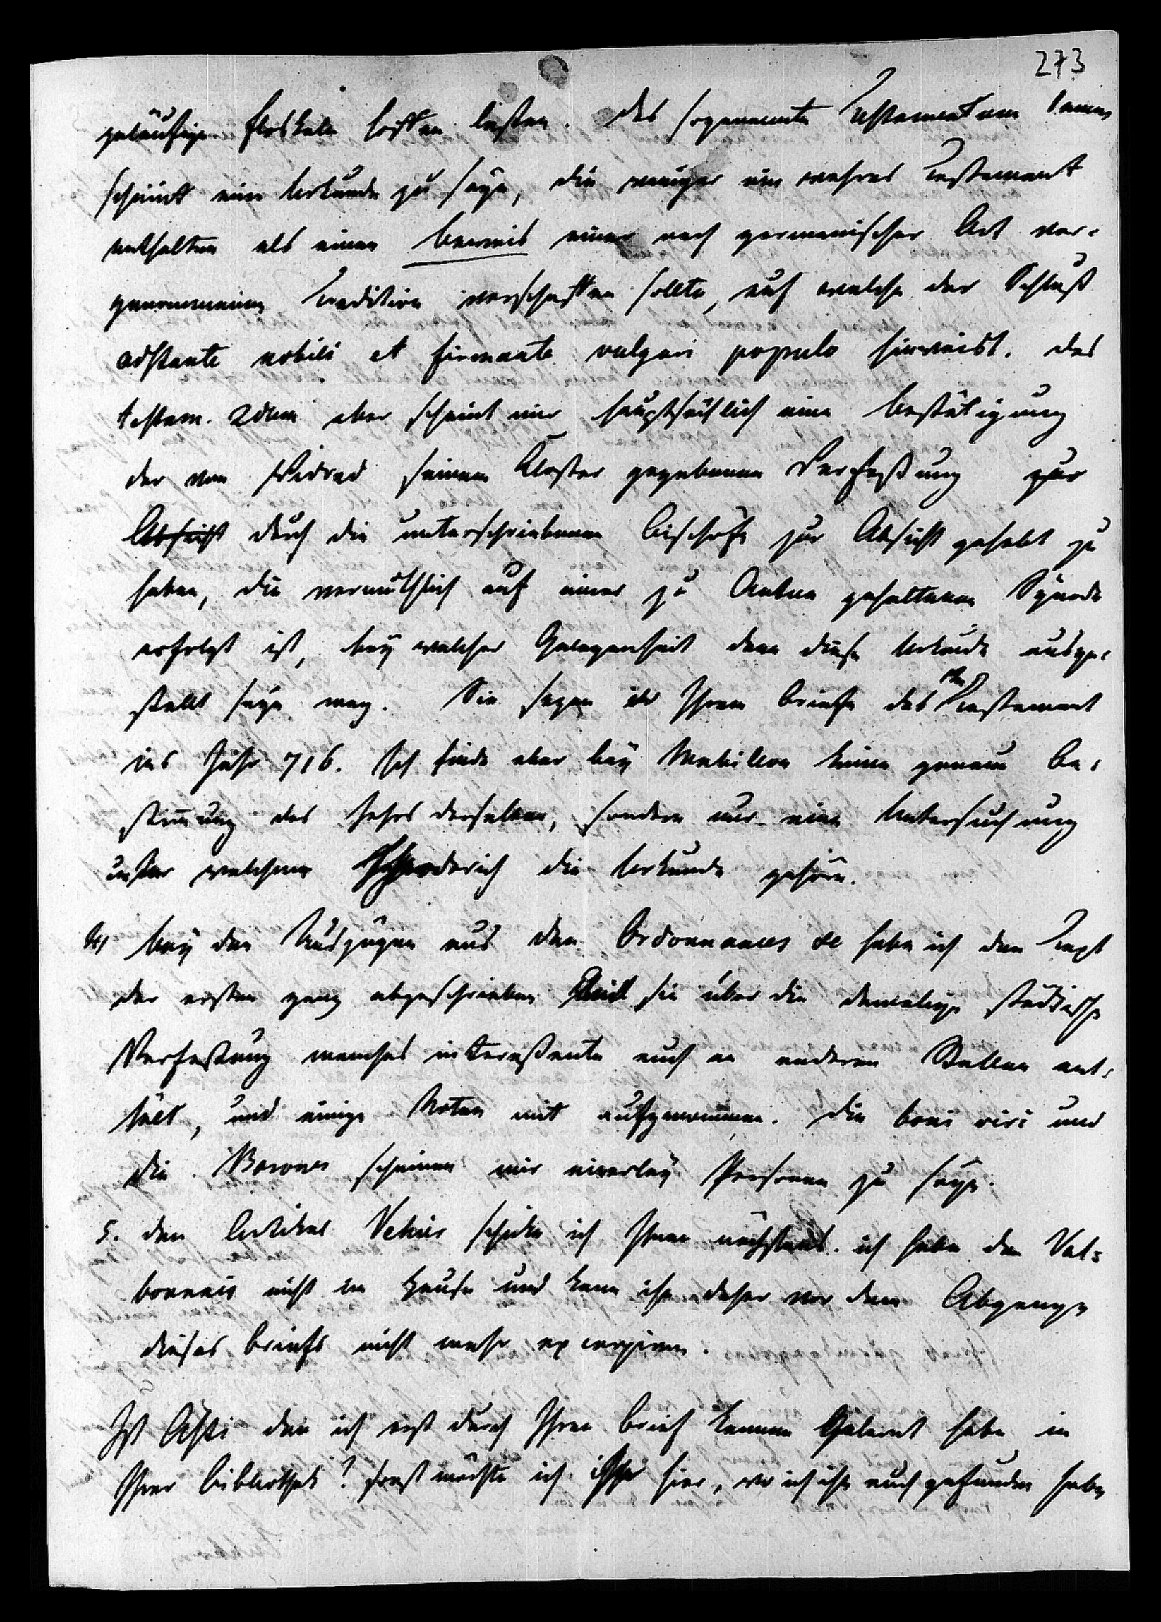 273
geläufige Floskeln hätten laßen. Das sogenannte Testamentum 1mum
scheint eine Urkunde zu seyn, die weniger ein wahres Testament
enthalten als einen Beweis einer nach germanischer Art vor-
genommenen Tradition verschaffen sollte, auf welche der Schluß
adstante nobili et firmante vulgari populo hinweist. Das
testam. 2dum aber scheint mir hauptsächlich eine Bestätigung
der von Widrad seinem Kloster gegebenen Verfaßung zur
Absicht durch die unterschriebenen Bischöfe zur Absicht gehabt zu
haben, die vermuthlich auf einer zu Autun gehaltenen Synode
erfolgt ist, bey welcher Gelegenheit denn diese Urkunde ausge-
stellt seyn mag. Sie sezen in Ihrem Briefe das Testament
ins Jahr 716. Ich finde aber bey Mabillon keine genaue Be-
stimmung des Jahrs derselben, sondern nur eine Untersuchung
unter welchem Theoderich die Urkunde gehöre.
4) bey den Auszügen aus den Ordonnances &c habe ich den Text
der ersten ganz abgeschrieben weil sie über die damalige städtische
Verfaßung manches interessante auch an anderen Stellen ent-
hält, und einige Noten mit aufgenommen. Die boni viri und
die Barones scheinen mir einerley Personen zu seyn.
5. den Artikel Vehus schicke ich Ihnen nächstens. ich habe den Val-
bonnais nicht im Hause und kann ihn daher vor dem Abgange
dieses Briefs nicht mehr excerpiren.
Ist Asti den ich erst durch Ihren Brief kennen gelernt habe in
Ihrer Bibliothek? sonst möchte ich ihn hier, wo ich ihn auch gefunden habe